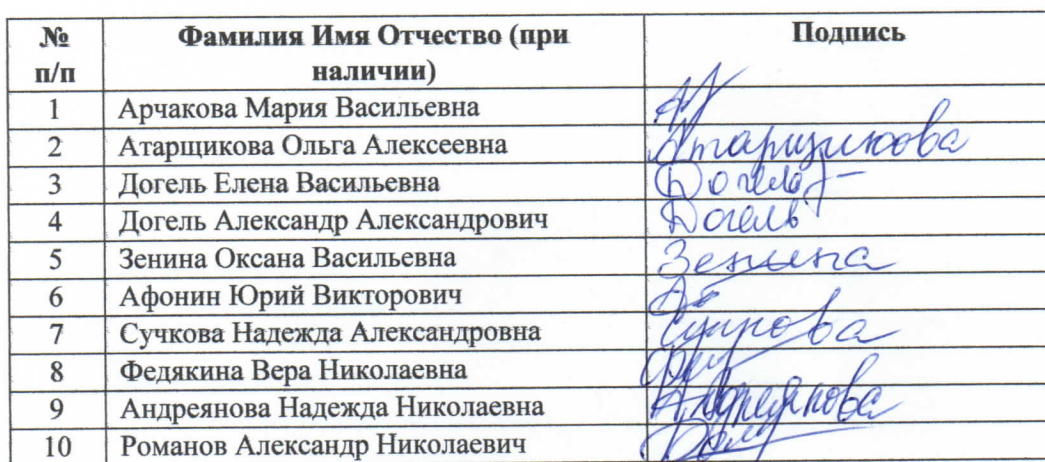 № п/п Фамилия Имя Отчество (при наличии) Подпись
1 Арчакова Мария Васильевна
2 Атарщикова Ольга Алексеевна Атарщикова
3 Догель Елена Васильевна
4 Догель Александр Александрович Догель
5 Зенина Оксана Васильевна Зенина
6 Афонин Юрий Викторович
7 Сучкова Надежда Александровна
8 Федякина Вера Николаевна
9 Андреянова Надежда Николаевна Андреянова
10 Романов Александр Николаевич